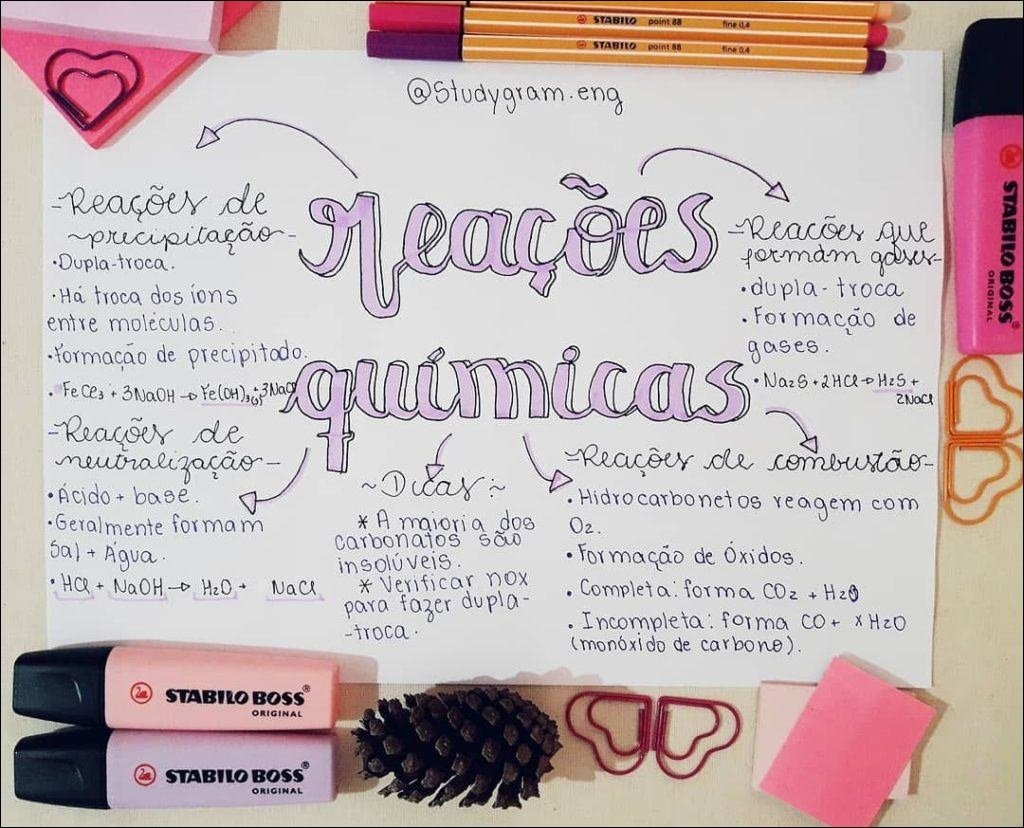 STABILO point 88 fine 0,4
STABILO point 88 fine 0,4
@Studygram.eng
Reações químicas
-Reações de
precipitação-
•Dupla-troca.
•Há troca dos íons
entre moléculas.
•Formação de precipitado.
•FeCl3 + 3NaOH → Fe(OH)3(s) + 3NaCl
-Reações que
formam gases-
•dupla-troca
•Formação de
gases.
•Na2S + 2HCl → H2S +
2NaCl
-Reações de
neutralização-
•Ácido + base.
•Geralmente formam
Sal + Água.
•HCl + NaOH → H2O + NaCl
~Dicas~
*A maioria dos
carbonatos são
insolúveis.
*Verificar nox
para fazer dupla-
-troca.
-Reações de combustão-
•Hidrocarbonetos reagem com
O2.
•Formação de Óxidos.
•Completa: forma CO2 + H2O
•Incompleta: forma CO + xH2O
(monóxido de carbono).
STABILO BOSS®
ORIGINAL
STABILO BOSS®
ORIGINAL
STABILO BOSS®
ORIGINAL